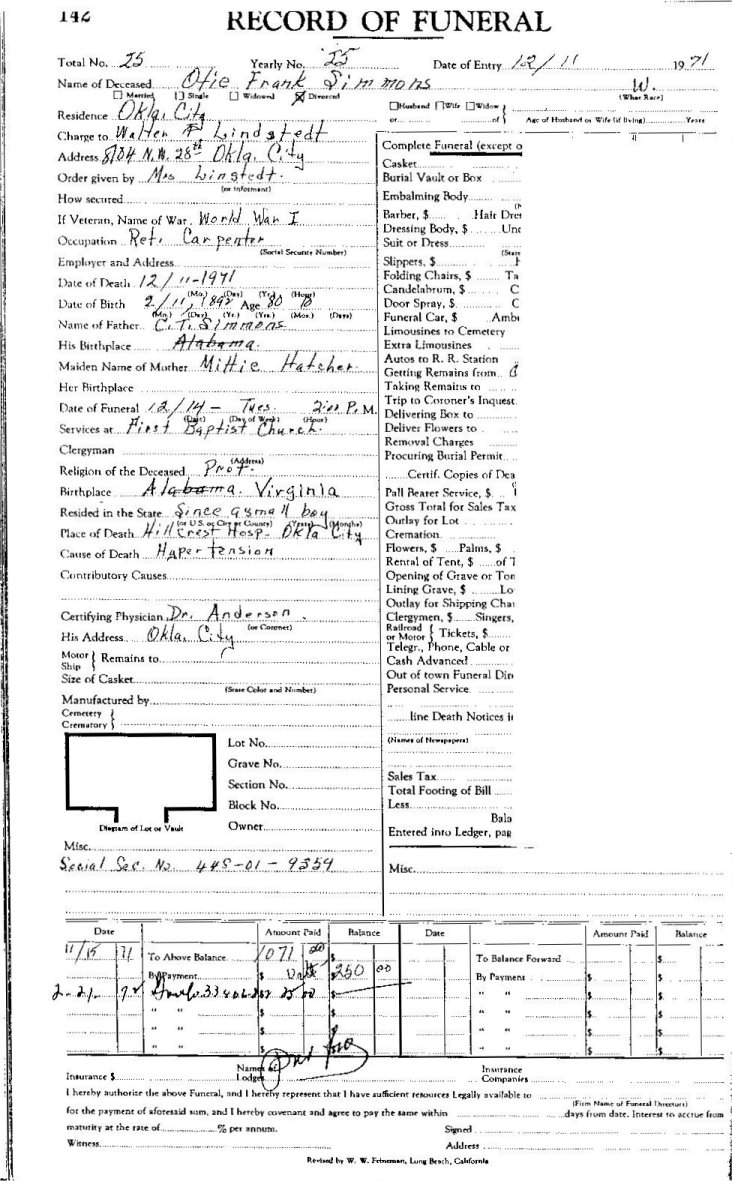 142
RECORD OF FUNERAL
Total No. 25 Yearly No. 25 Date of Entry 12/11 1971
Name of Deceased Otie Frank Simmons W.
Married Single Widowed Divorced (What Race)
Residence Okla. City Husband Wife Widow
or of Age of Husband or Wife (if living) Years
Charge to Walter F Lindstedt
Address 8104 N.W. 28th Okla. City
Order given by Mrs Linstedt.
(or Informant)
How secured
If Veteran, Name of War World War I
Occupation Ret. Carpenter
(Social Security Number)
Employer and Address
Date of Death 12/11-1971
(Mo.) (Day) (Yr.) (Hour)
Date of Birth 2/11/1892 Age 80 10
(Mo.) (Day) (Yr.) (Yrs.) (Mos.) (Days)
Name of Father C. T. Simmons
His Birthplace Alabama.
Maiden Name of Mother Mittie Hatcher.
Her Birthplace
Date of Funeral 12/14 - Tues. 2:00 P.M.
(Date) (Day of Week) (Hour)
Services at First Baptist Church.
Clergyman
(Address)
Religion of the Deceased Prot.
Birthplace Alabama. Virginia
Resided in the State Since a small boy
(or U S. or City or County) (Years) (Months)
Place of Death Hillcrest Hosp. Okla City
Cause of Death Hapertension
Contributory Causes
Certifying Physician Dr. Anderson.
(or Coroner)
His Address Okla. City
Motor
Ship Remains to
Size of Casket
(State Color and Number)
Manufactured by
Cemetery
Crematory
Lot No.
Grave No.
Section No.
Block No.
Diagram of Lot or Vault Owner
Misc.
Social Sec. No. 448-01-9359
Complete Funeral (except o
Casket
Burial Vault or Box
Embalming Body
Barber, $ Hair Dre
Dressing Body, $ Und
Suit or Dress
(State
Slippers, $
Folding Chairs, $ Ta
Candelabrum, $ C
Door Spray, $ C
Funeral Car, $ Ambu
Limousines to Cemetery
Extra Limousines
Autos to R. R. Station
Getting Remains from
Taking Remains to
Trip to Coroner's Inquest
Delivering Box to
Deliver Flowers to
Removal Charges
Procuring Burial Permit
Certif. Copies of Dea
Pall Bearer Service, $
Gross Total for Sales Tax
Outlay for Lot
Cremation
Flowers, $ Palms, $
Rental of Tent, $ of T
Opening of Grave or Tom
Lining Grave, $ Lo
Outlay for Shipping Char
Clergymen, $ Singers,
Railroad
or Motor Tickets, $
Telegr., Phone, Cable or
Cash Advanced
Out of town Funeral Dire
Personal Service
line Death Notices in
(Names of Newspapers)
Sales Tax
Total Footing of Bill
Less
Bala
Entered into Ledger, pag
Misc.
Date Amount Paid Balance Date Amount Paid Balance
11/15 71 To Above Balance 1071 00 $ To Balance Forward $
By Payment $ Vault $250 00 By Payment $ $
2-21- 72 $ 25 00 $ " " $ $
" " $ $ " " $ $
" " $ $ " " $ $
" " $ $ " " $ $
Insurance $ Names of
Lodges Insurance
Companies
I hereby authorize the above Funeral, and I hereby represent that I have sufficient resources Legally available to
(Firm Name of Funeral Directors)
for the payment of aforesaid sum, and I hereby covenant and agree to pay the same within days from date. Interest to accrue from
maturity at the rate of % per annum. Signed
Witness Address
Revised by W. W. Feineman, Long Beach, California